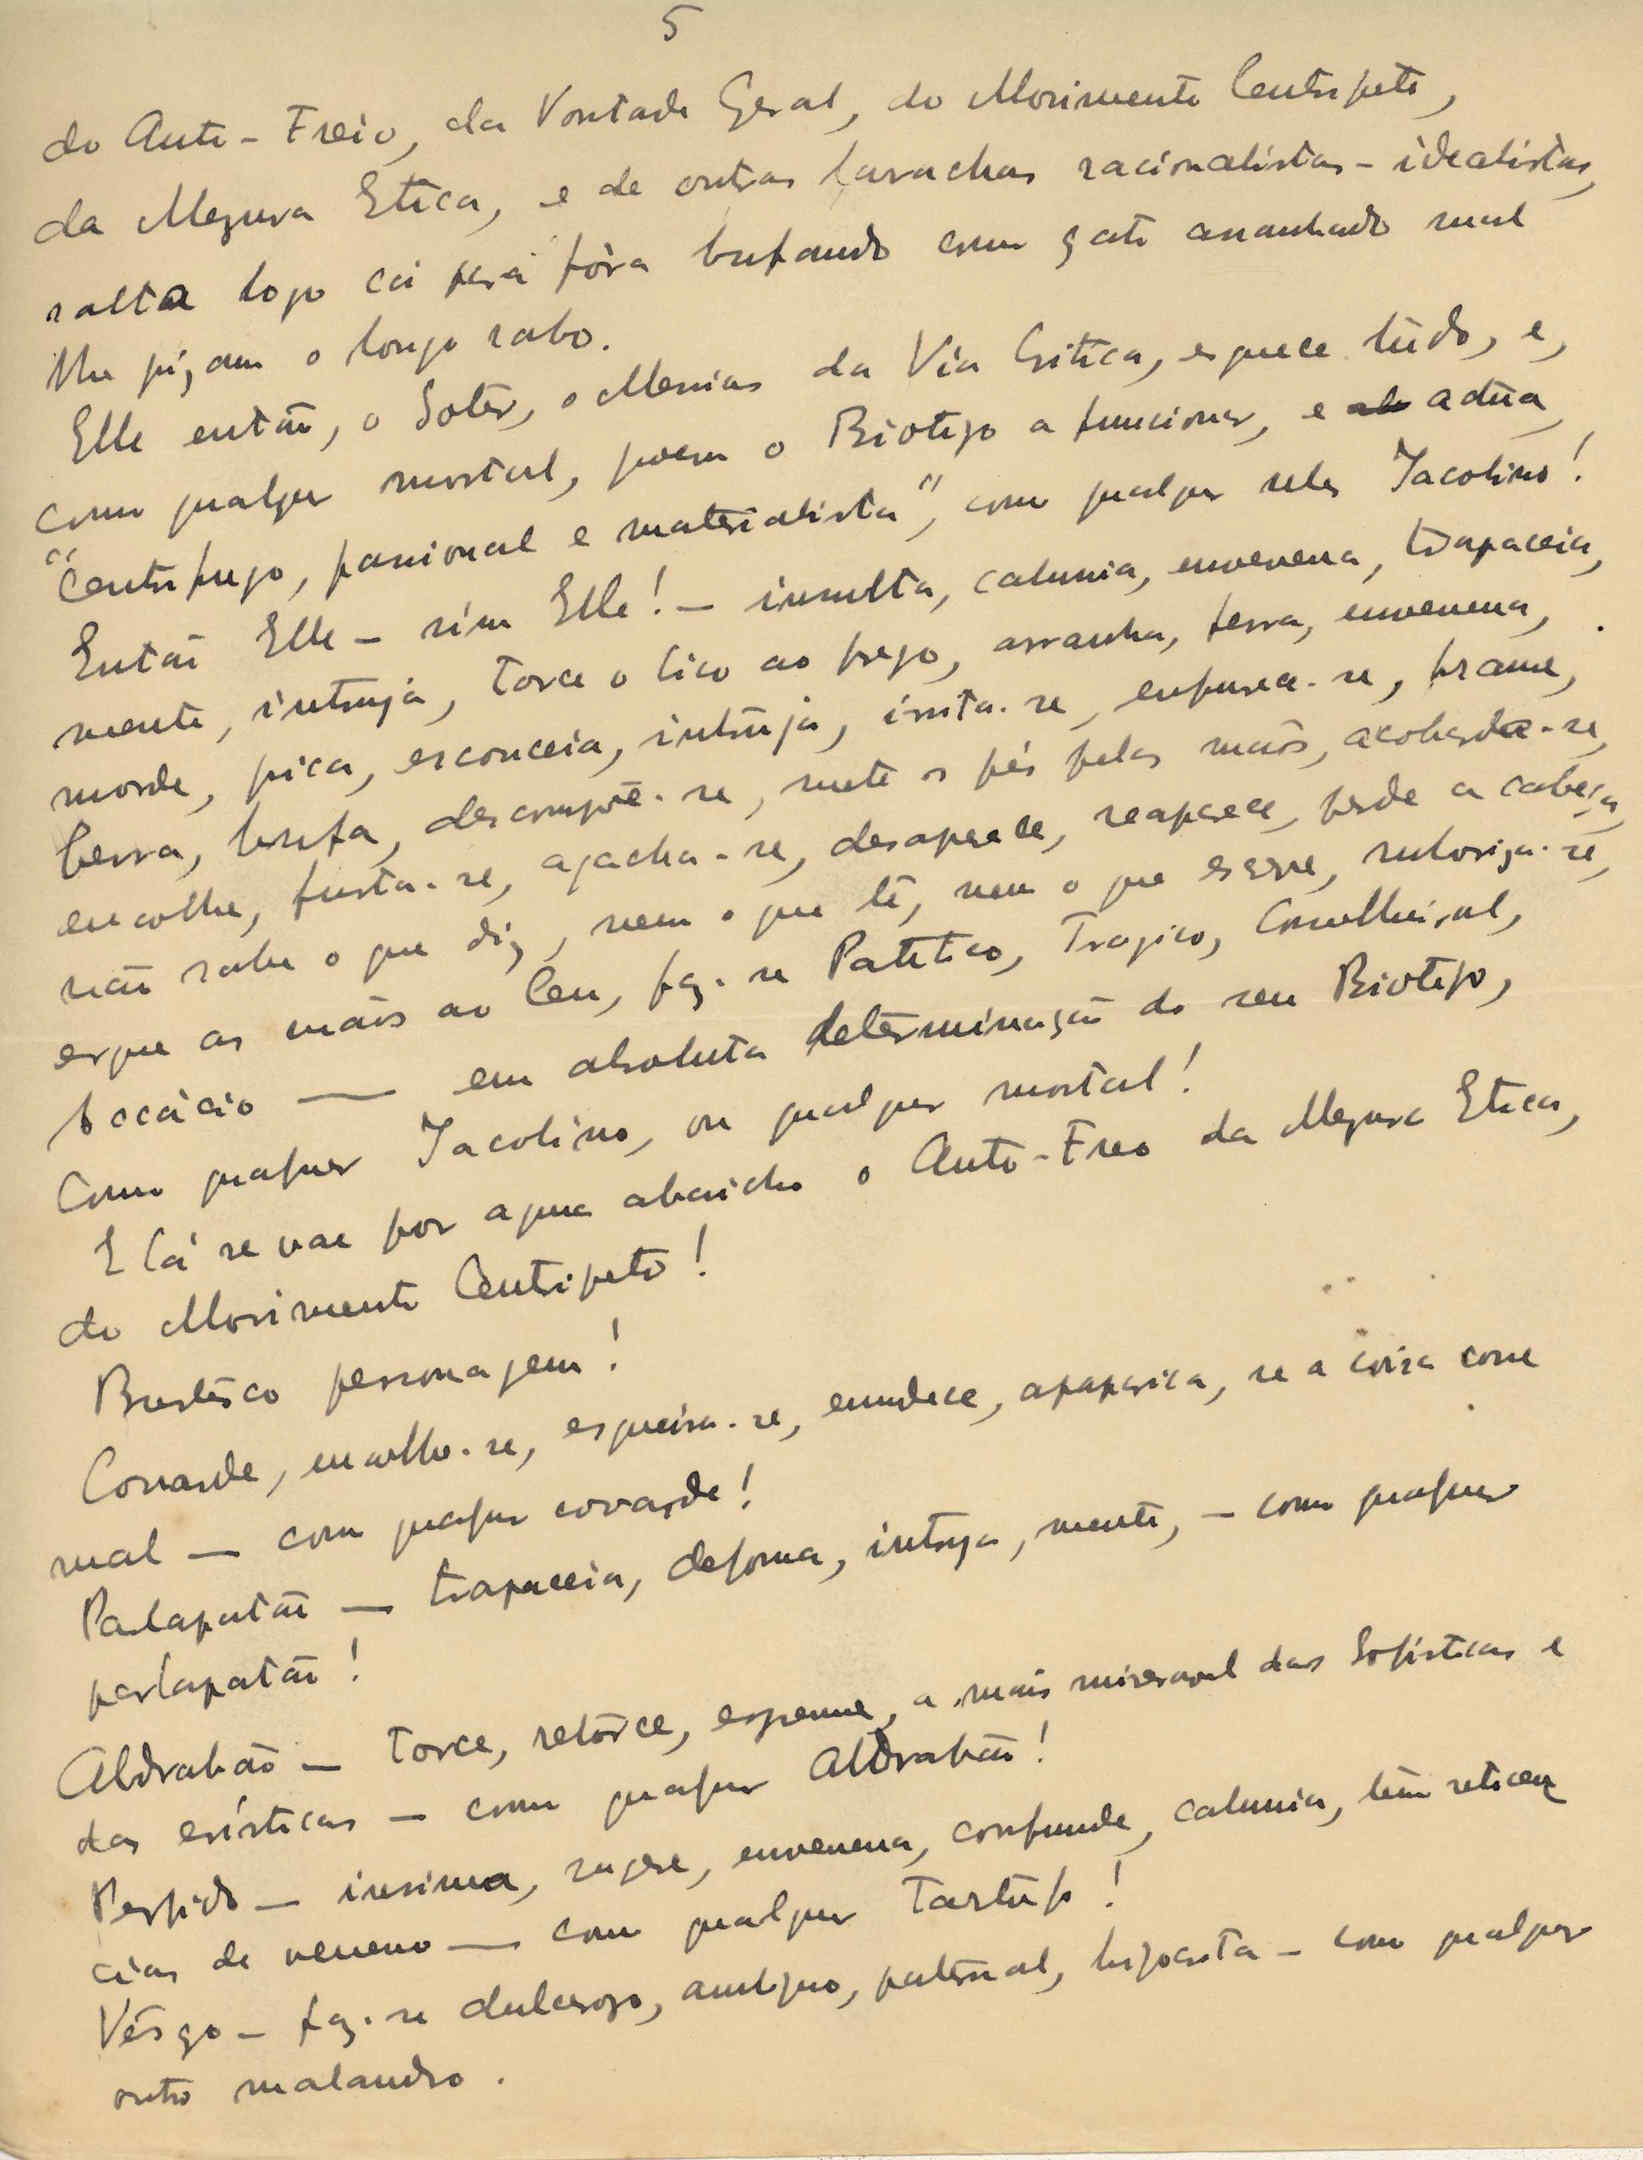 5
do Auto-Freio, da Vontade Geral, do Movimento Centripeto,
da Megera Etica, e de outras larachas racionalistas-idealistas,
salta logo cá para fóra bufando como gato assanhado mal
lhe pizam o longo rabo.
Elle então, o Soter, o Messias da Via Critica, esquece tudo, e,
como qualquer mortal, poem o Biotipo a funcionar, e actúa,
"centrifugo, passional e materialista", como qualquer reles Jacobino!
Então Elle – sim Elle! – insulta, calunia, envenena, trapaceia,
mente, intruja, torce o bico ao prego, arranha, ferra, envenena,
morde, pica, esconceia, intruja, irrita-se, enfurece-se, brame,
berra, bufa, descompõe-se, mete os pés pelas mãos, acobarda-se,
encolhe, furta-se, agacha-se, desaparece, reaparece, perde a cabeça,
não sabe o que diz, nem o que lê, nem o que escreve, ruboriza-se,
ergue as mãos ao Ceu, faz-se Patetico, Tragico, Conselheiral,
Accácio — em absoluta determinação do seu Biotipo,
Como qualquer Jacobino, ou qualquer mortal!
E lá se vae por agua abaicho o Auto-Freo da Megera Etica,
do Movimento Centripeto!
Burlesco personagem!
Covarde, encolhe-se, esgueira-se, emudece, apaparica, se a coisa corre
mal – como qualquer covarde!
Parlapatão – trapaceia, deforma, intruja, mente, – como qualquer
parlapatão!
Aldrabão – torce, retorce, espreme, a mais miseravel das Sofisticas e
das erísticas – como qualquer Aldrabão!
Perfido – insinua, sugere, envenena, confunde, calunia, têm reticen
cias de veneno – como qualquer Tartufo!
Vêsgo – faz-se dulceroso, ambiguo, paternal, hipocrita – como qualquer
outro malandro.